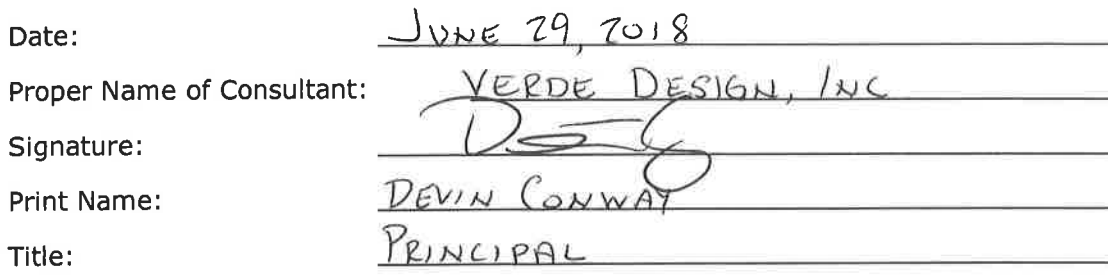 Date: JUNE 29, 2018
Proper Name of Consultant: VERDE DESIGN, INC
Signature:
Print Name: DEVIN CONWAY
Title: PRINCIPAL